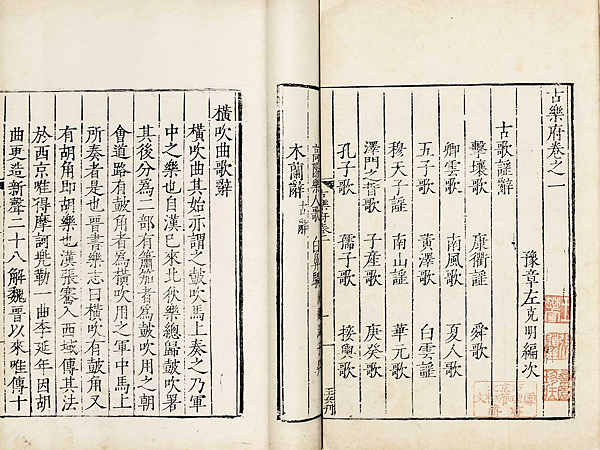 古樂府卷之一
豫章左克明編次
古歌謡辭
擊壤歌 康衢謡 舜歌
卿雲歌 南風歌 夏人歌
五子歌 黃澤謡 白雲謡
穆天子謡 南山歌 華元歌
澤門之晳歌 子產歌 庚癸歌
孔子歌 孺子歌 接輿歌
木蘭辭 古辭
橫吹曲歌辭
橫吹曲其始亦謂之鼓吹馬上奏之乃軍
中之樂也自漢已來北狄樂總歸鼓吹署
其後分爲二部有簫笳者爲鼓吹用之朝
會道路有鼓角者爲橫吹用之軍中馬上
所奏者是也晉書樂志曰橫吹有鼓角又
有胡角即胡樂也漢張騫入西域傳其法
於西京唯得摩訶兠勒一曲李延年因胡
曲更造新聲二十八解魏晉以來唯傳十